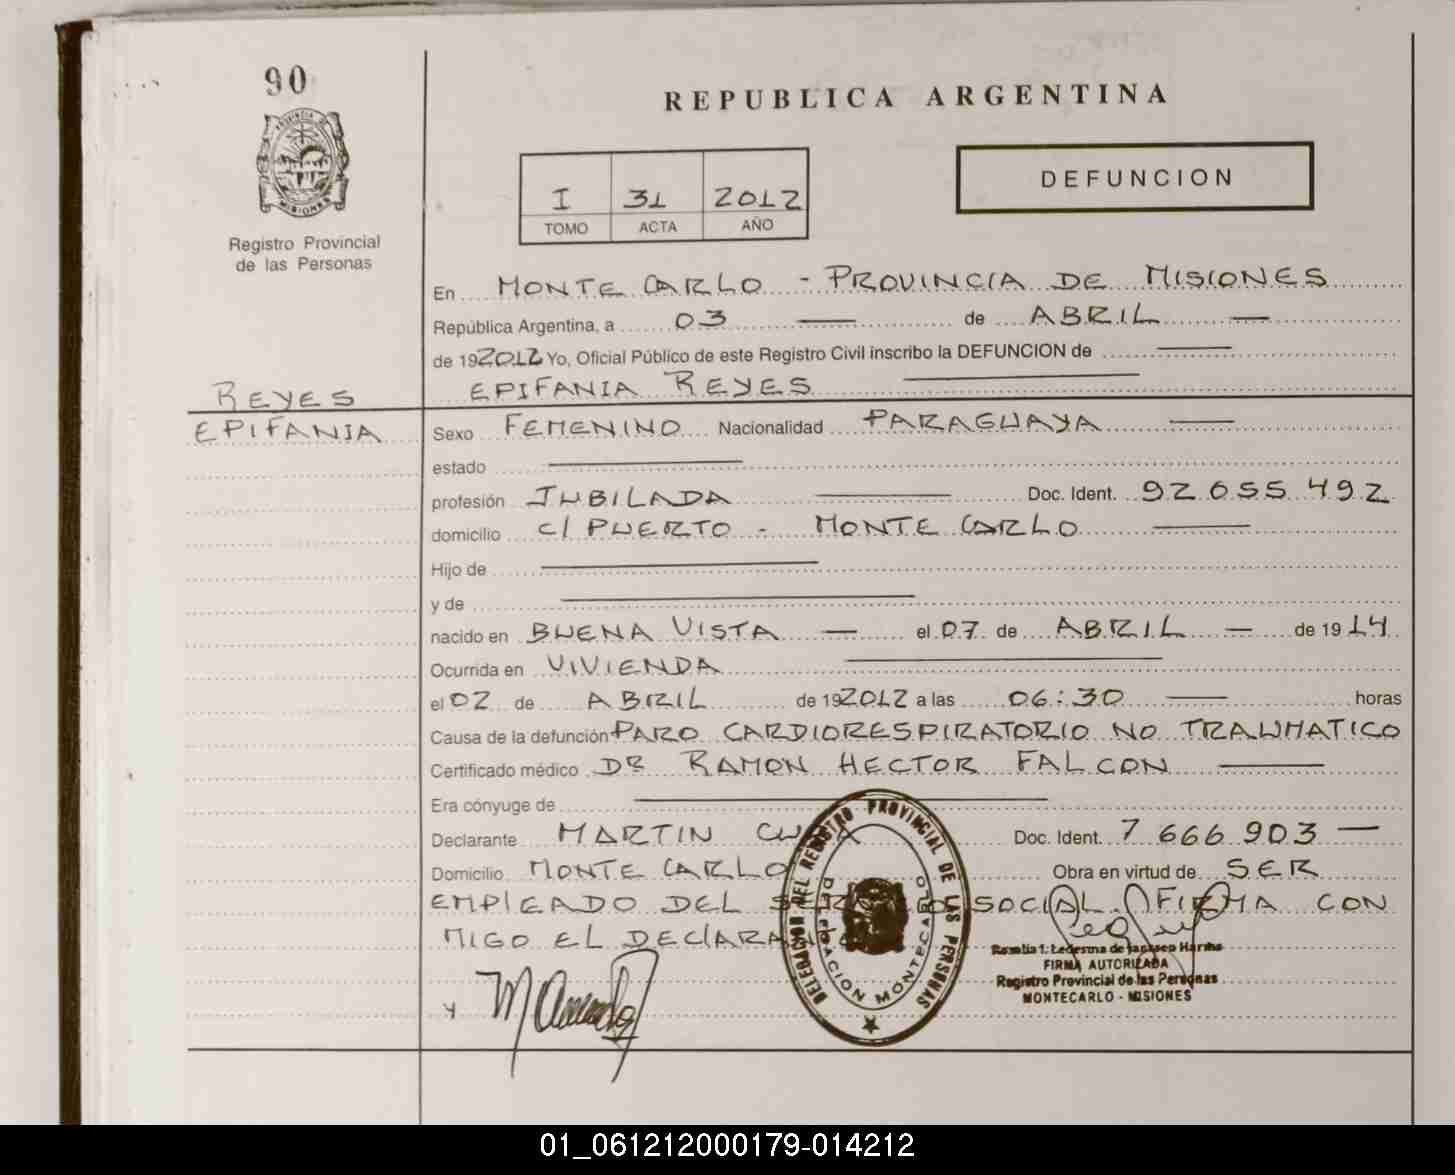 90
PROVINCIA DE
MISIONES
Registro Provincial
de las Personas
REPUBLICA ARGENTINA
I 31 2012
TOMO ACTA AÑO
DEFUNCION
En MONTE CARLO - PROVINCIA DE MISIONES
República Argentina, a 03 de ABRIL
de 192012 Yo, Oficial Público de este Registro Civil inscribo la DEFUNCION de
EPIFANIA REYES
REYES
EPIFANIA
Sexo FEMENINO Nacionalidad PARAGUAYA
estado
profesión JUBILADA Doc. Ident. 92.055.492
domicilio C/ PUERTO - MONTE CARLO
Hijo de
y de
nacido en BUENA VISTA el 07 de ABRIL de 1914
Ocurrida en VIVIENDA
el 02 de ABRIL de 192012 a las 06:30 horas
Causa de la defunción PARO CARDIORESPIRATORIO NO TRAUMATICO
Certificado médico DR RAMON HECTOR FALCON
Era cónyuge de
Declarante MARTIN Doc. Ident. 7 666 903
Domicilio MONTE CARLO Obra en virtud de SER
EMPLEADO DEL SOCIAL. FIRMA CON
MIGO EL DECLARA
y
DELEGACION DEL REGISTRO PROVINCIAL DE LAS PERSONAS
DELEGACION MONTECARLO
Ledesma de
FIRMA AUTORIZADA
Registro Provincial de las Personas
MONTECARLO - MISIONES
01_061212000179-014212